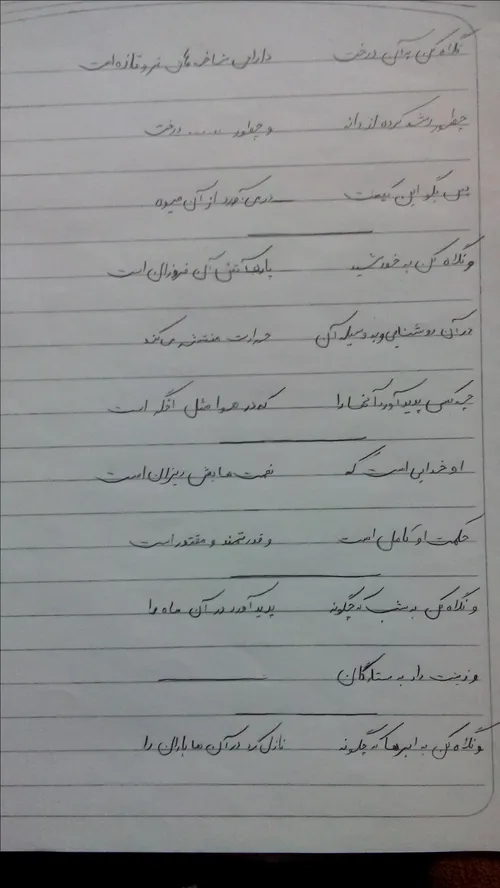 نگاه کن به آن درخت دارای شاخه های تر و تازه است
چطور رشد کرده از دانه و چطور ...... درخت
پس بگو این کیست در می آورد از آن میوه
و نگاه کن به خورشید پاره آتش آن فروزان است
در آن روشنایی و به وسیله آن حرارت منتشر می کند
چه کسی پدید آورد آنها را که در هوا مثل اخگر است
او خدایی است که نعمت هایش ریزان است
حکمت او کامل است و قدرتمند و مقتدر است
و نگاه کن به شب که چگونه پدید آورد در آن ماه را
و زینت داد به ستارگان
و نگاه کن به ابرها که چگونه نازل کرد در آن ها باران را